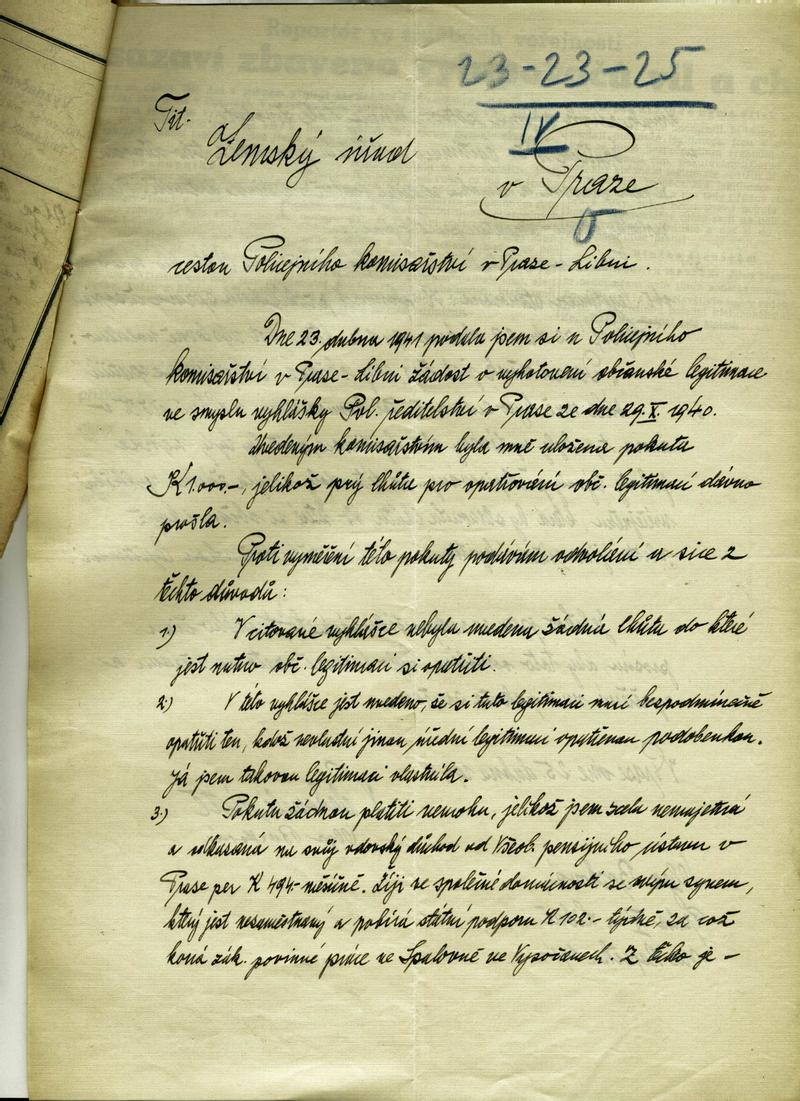 23-23-25
IV
Tit.
Zemský úřad
v Praze
cestou Policejního komisařství v Praze-Libni.
Dne 23. dubna 1941 podala jsem si u Policejního
komisařství v Praze-Libni žádost o vyhotovení občanské legitimace
ve smyslu vyhlášky Pol. ředitelství v Praze ze dne 29. X. 1940.
Uvedeným komisařstvím byla mně uložena pokuta
K 1.000.-, jelikož prý lhůta pro opatřování obč. legitimací dávno
prošla.
Proti vyměření této pokuty podávám odvolání a sice z
těchto důvodů:
1.) V citované vyhlášce nebyla uvedena žádná lhůta do které
jest nutno obč. legitimaci si opatřiti.
2.) V této vyhlášce jest uvedeno, že si tuto legitimaci musí bezpodmínečně
opatřiti ten, kdož nevlastní jinou úřední legitimaci opatřenou podobenkou.
Já jsem takovou legitimaci vlastnila.
3.) Pokutu žádnou platiti nemohu, jelikož jsem zcela nemajetná
a odkázaná na svůj vdovský důchod od Všeob. pensijního ústavu v
Praze per K 494.- měsíčně. Žiji ve společné domácnosti se svým synem,
který jest nezaměstnaný a pobírá státní podporu K 102.- týdně, za což
koná zák. povinné práce ve Spalovně ve Vysočanech. Z toho je -